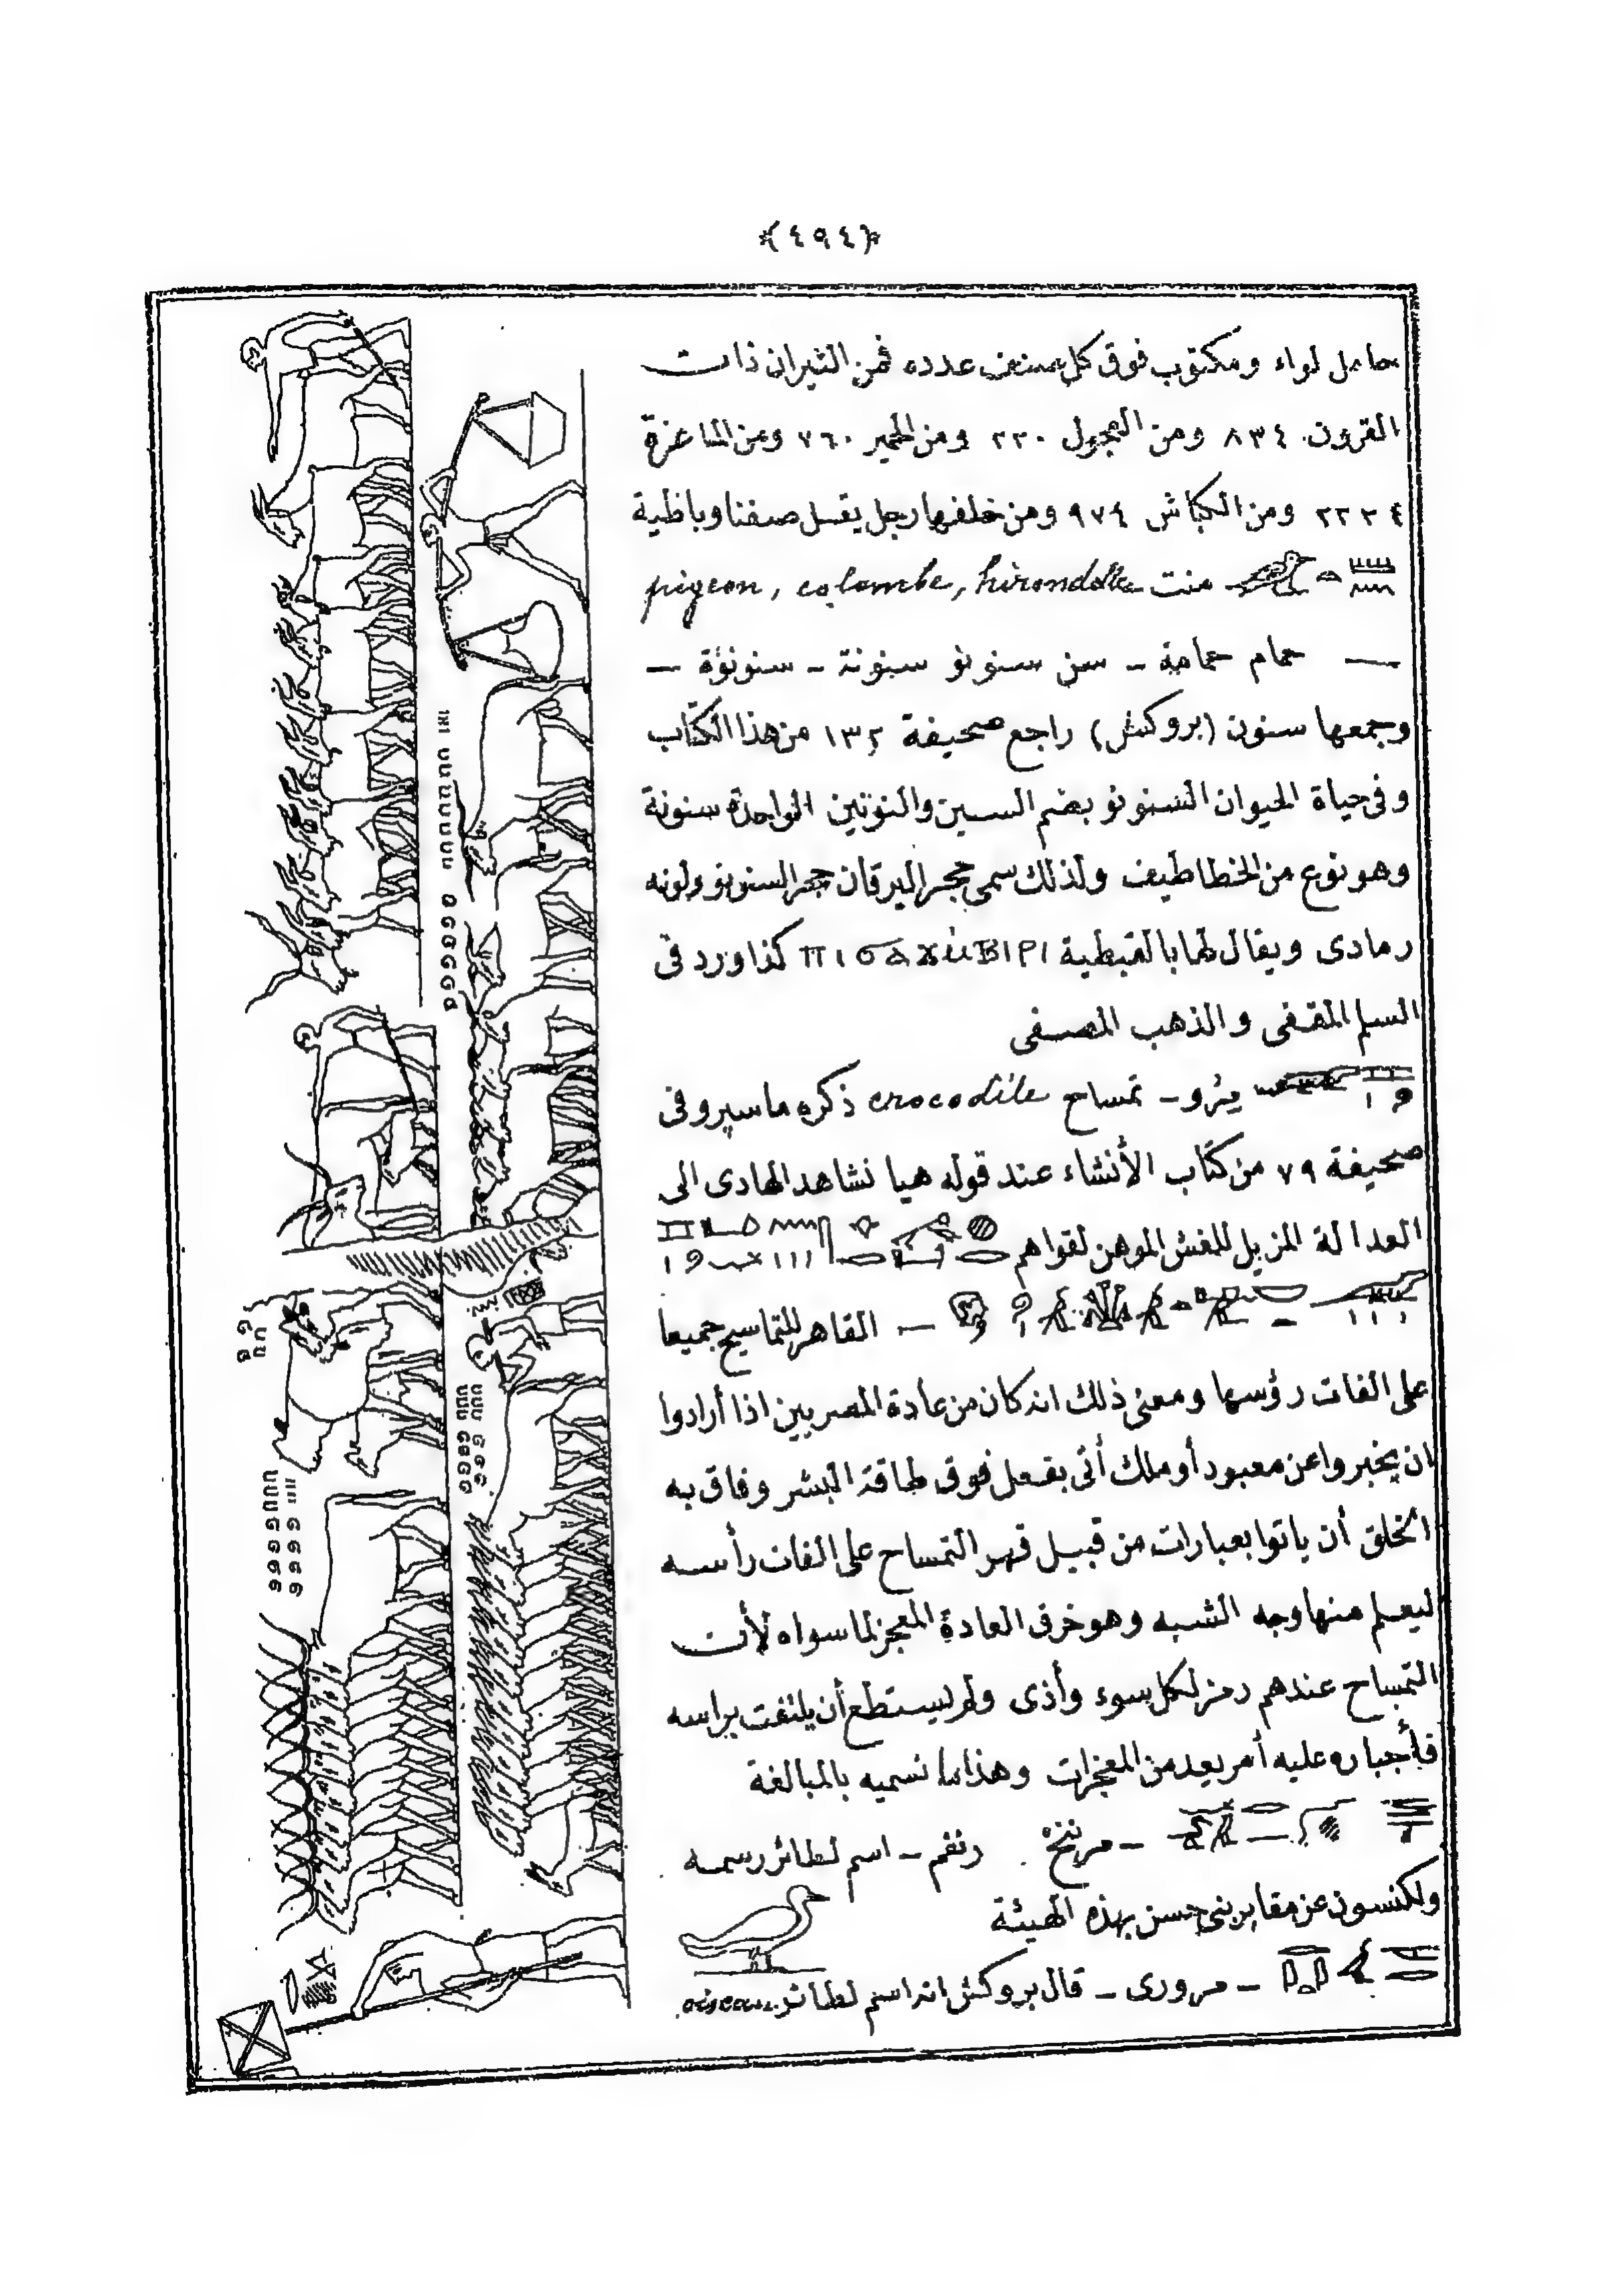 ﴿٤٩٤﴾
حامل لواء ومكتوب فوق كل صنف عدده فمن الثيران ذات
القرون ٨٣٤ ومن العجول ٢٢٠ ومن الحمير ٧٦٠ ومن الماعزة
٢٢٣٤ ومن الكباش ٩٧٤ ومن خلفها رجل يغسل صفنا وباظية
منت pigeon, colombe, hirondelle
— حمام حمامة - سنونو سنونة - سنونؤة -
وجمعها سنون (بروكش) راجع صحيفة ١٣٢ من هذا الكتاب
وفى حياة الحيوان السنونو بضم السين والنونين الواحدة سنونة
وهو نوع من الخطاطيف ولذلك سمى حجر اليرقان حجر السنونو ولونه
رمادى ويقال لها بالقبطية كذا ورد فى
السلم المقفى والذهب المصفى
- تمساح crocodile ذكره ماسپرو فى
صحيفة ٧٩ من كتاب الأنشاء عند قوله هيا نشاهد الهادى الى
العدالة المزيل للغش الموهن لقواهم
— القاهر للتماسيح جميعا
على الفات رؤسها ومعنى ذلك انه كان من عادة المصريين اذا أرادوا
ان يخبروا عن معبود أو ملك أتى بفعل فوق طاقة البشر وفاق به
الخلق أن ياتوا بعبارات من قبيل قهر التمساح على الفات رأسه
ليعلم منها وجه الشبه وهو خرق العادة المعجز لما سواه لأن
التمساح عندهم رمز لكل سوء وأذى ولم يستطع أن يلتفت براسه
فأجباره عليه أمر يعد من المعجزات وهذا ما نسميه بالمبالغة
- اسم لطائر رسمه
ولكنسون عن مقابر بنى حسن بهذه الهيئة
- مرورى - قال بروكش انه اسم لطائر oiseau